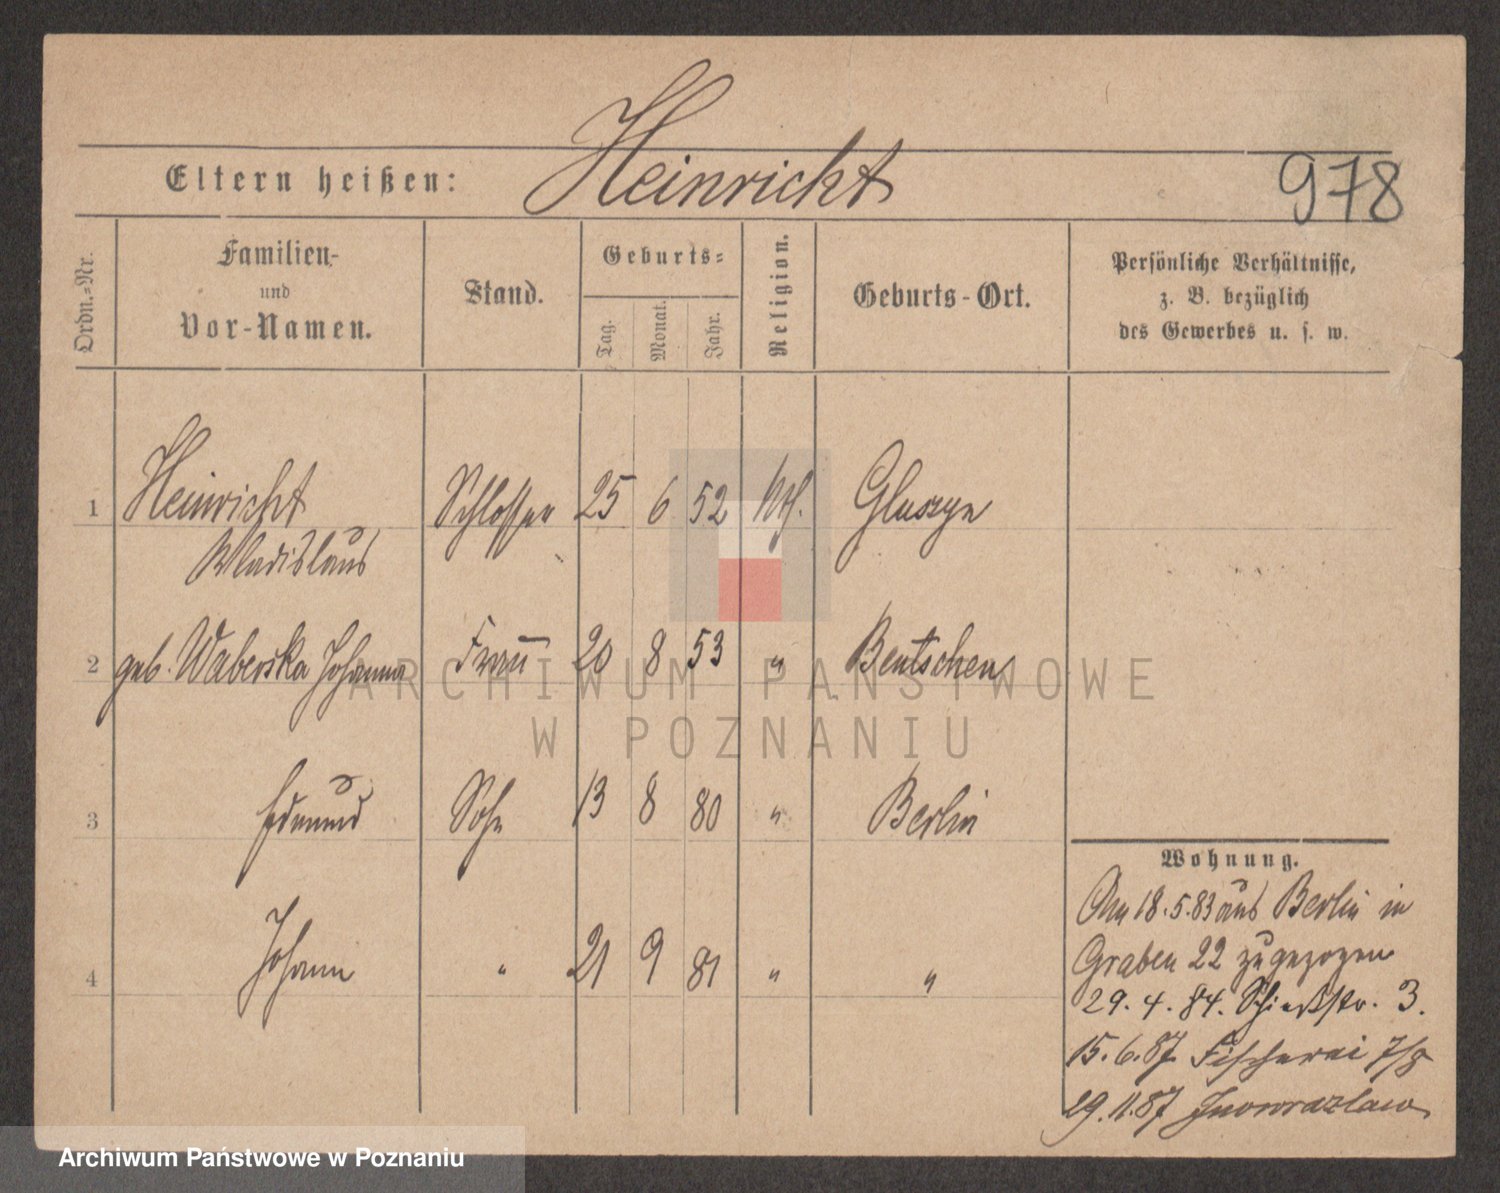 Heinricht
Eltern heißen:
978
Ordn.-Nr.
Familien-
und
Vor-Namen.
Stand.
Geburts-
Tag.
Monat.
Jahr.
Religion.
Geburts-Ort.
Persönliche Verhältnisse,
z. B. bezüglich
des Gewerbes u. s. w.
1 Heinricht Schlosser 25 6 52 kth. Gluszyn
Wladislaus
2 geb. Waberska Johanna Frau 20 8 53 " Bentschen
3 Edmund Sohn 13 8 80 " Berlin
4 Johann " 21 9 81 " "
Wohnung.
Am 18.5.83 aus Berlin in
Graben 22 zugezogen
29.4.84. Schießstr. 3.
15.6.87 Fischerei 7/8
29.11.87 Inowrazlaw
ARCHIWUM PAŃSTWOWE
W POZNANIU
Archiwum Państwowe w Poznaniu